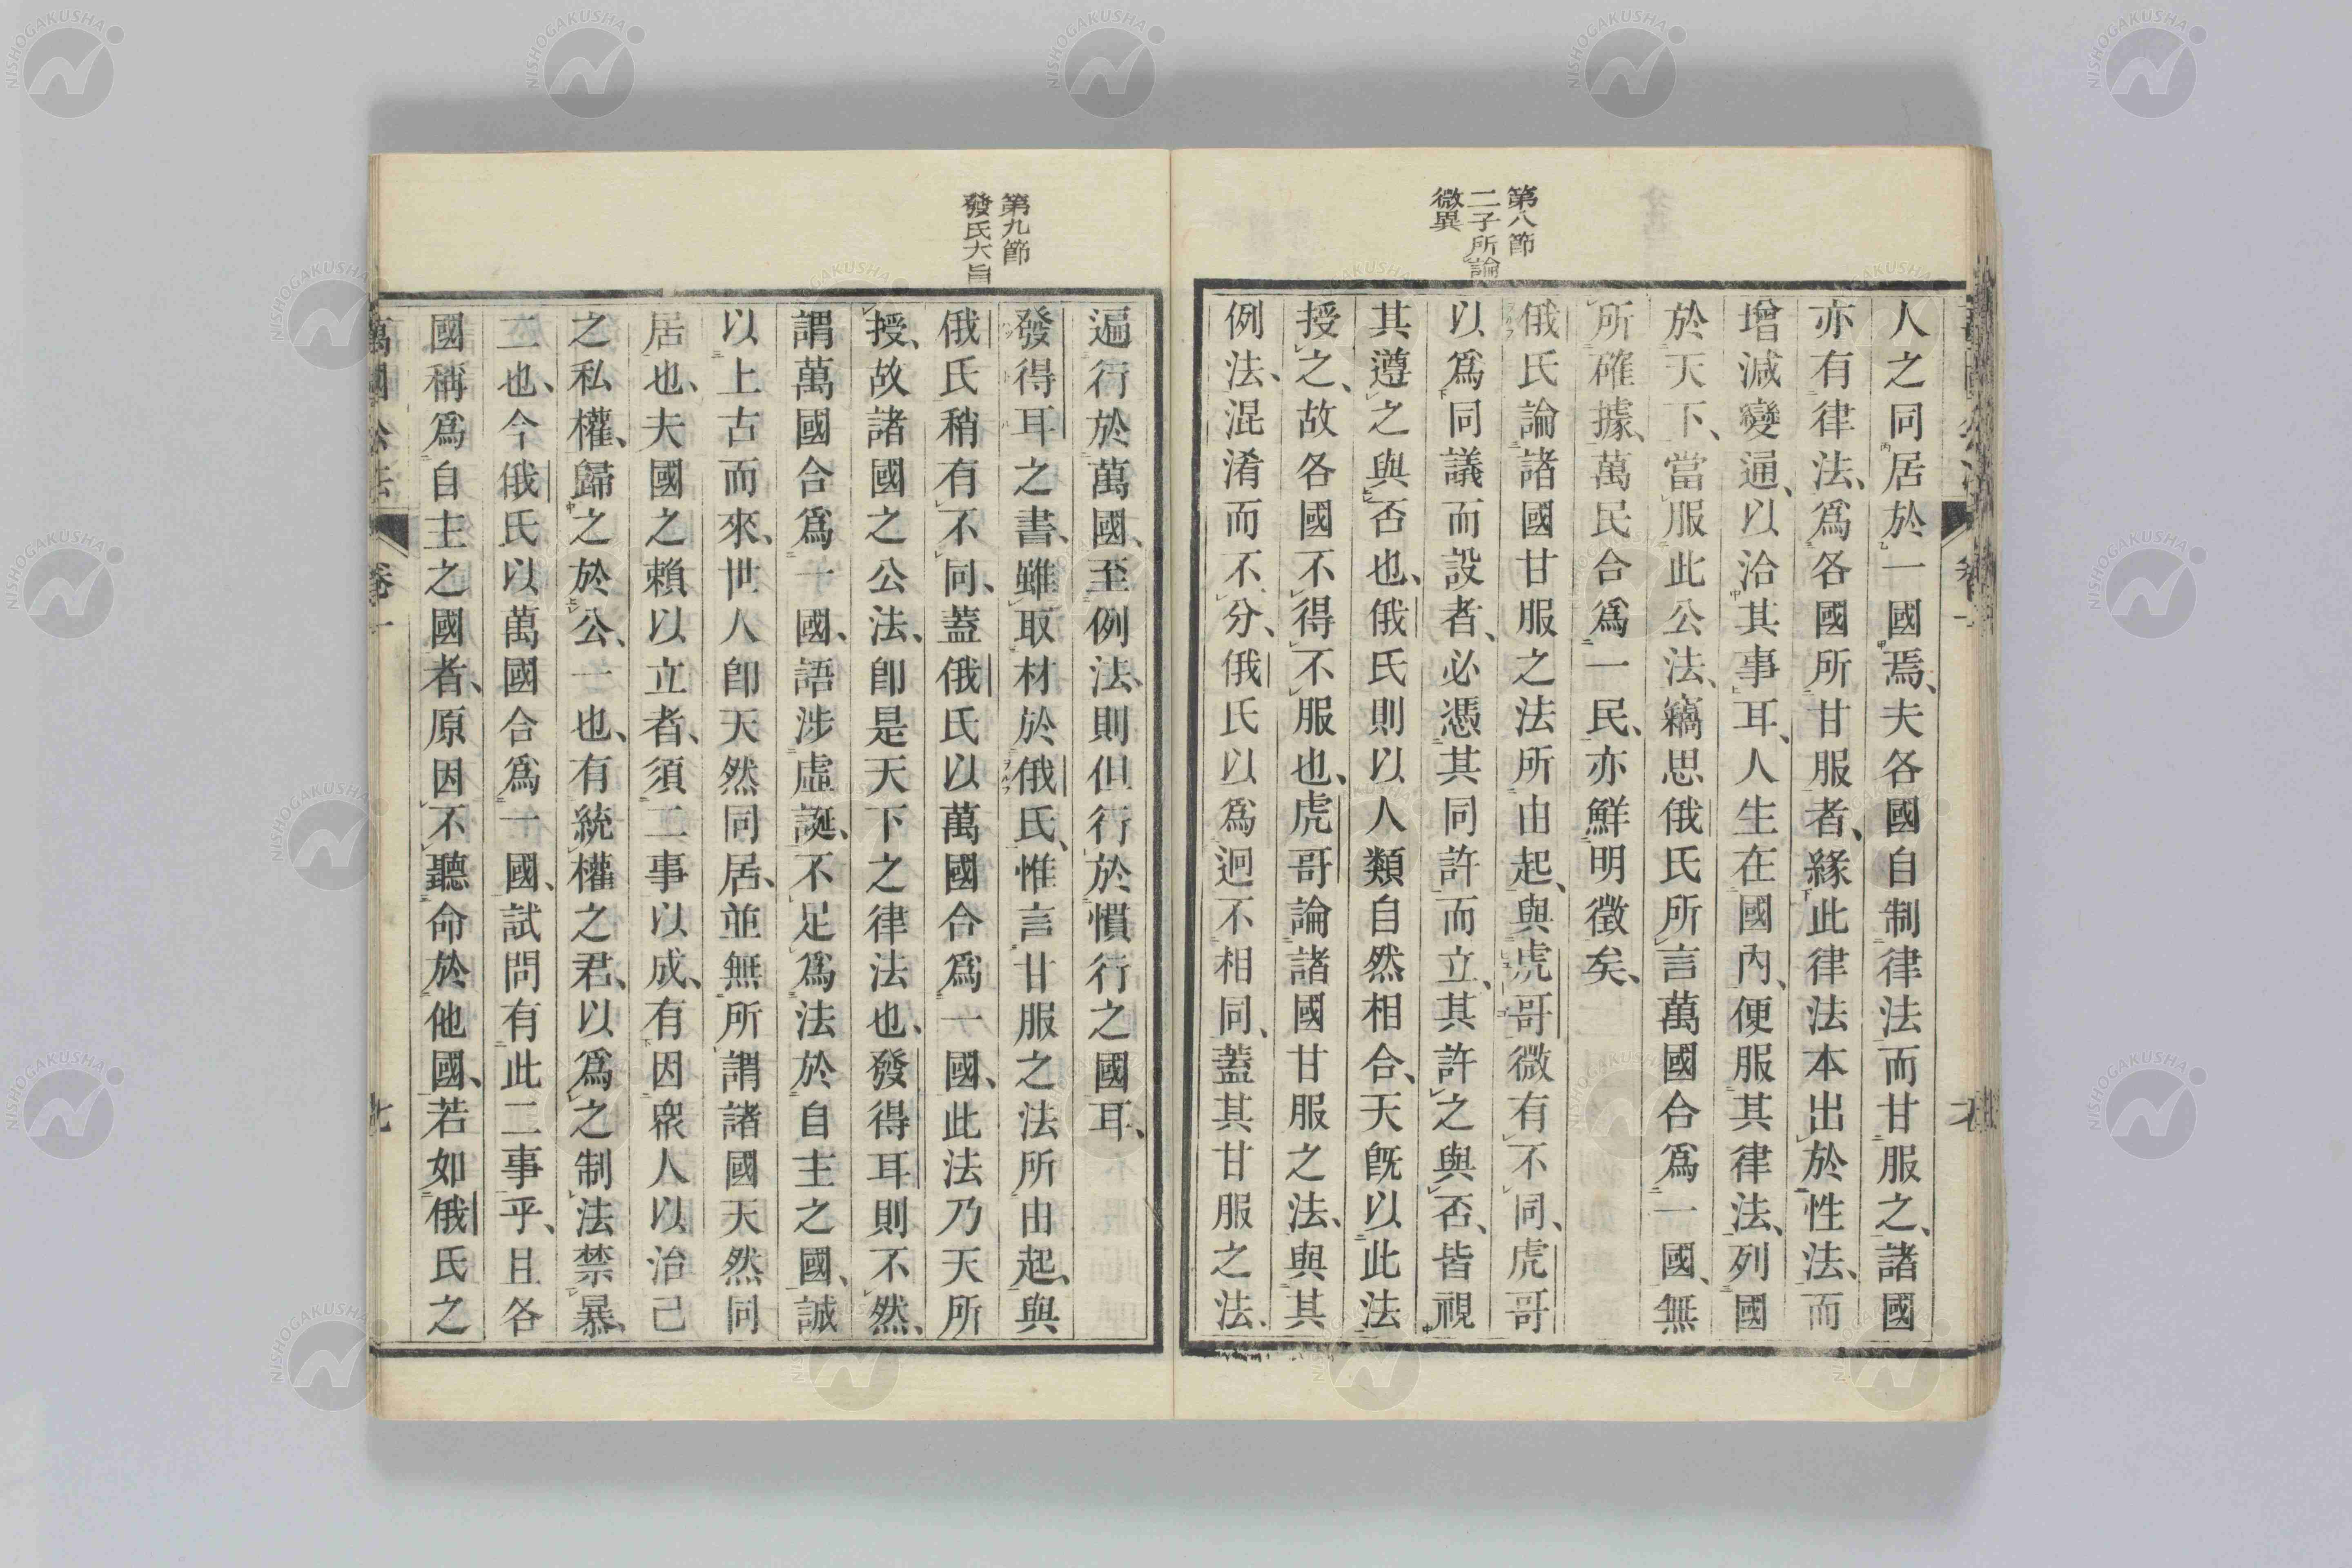 第八節
二子所論
微異
人之同居於一國焉、夫各國自制律法而甘服之、諸國
亦有律法、爲各國所甘服者、緣此律法本出於性法、而
增減變通、以洽其事耳、人生在國內、便服其律法、列國
於天下、當服此公法、竊思俄氏所言萬國合爲一國、無
所確據、萬民合爲一民、亦鮮明徵矣、
俄氏論諸國甘服之法所由起、與虎哥微有不同、虎哥
以爲同議而設者、必憑其同許而立、其許之與否、皆視
其遵之與否也、俄氏則以人類自然相合、天旣以此法
授之、故各國不得不服也、虎哥論諸國甘服之法、與其
例法、混淆而不分、俄氏以爲迥不相同、蓋其甘服之法、
第九節
發氏大旨
遍行於萬國、至例法、則但行於慣行之國耳、
發得耳之書、雖取材於俄氏、惟言甘服之法所由起、與
俄氏稍有不同、蓋俄氏以萬國合爲一國、此法乃天所
授、故諸國之公法、卽是天下之律法也、發得耳則不然、
謂萬國合爲一國、語涉虛誕、不足爲法於自主之國、誠
以上古而來、世人卽天然同居、並無所謂諸國天然同
居也、夫國之賴以立者、須二事以成、有因衆人以治己
之私權、歸之於公、一也、有統權之君、以爲之制法禁暴、
二也、今俄氏以萬國合爲一國、試問有此二事乎、且各
國稱爲自主之國者、原因不聽命於他國、若如俄氏之
萬國公法 卷一 七
NISHOGAKUSHA